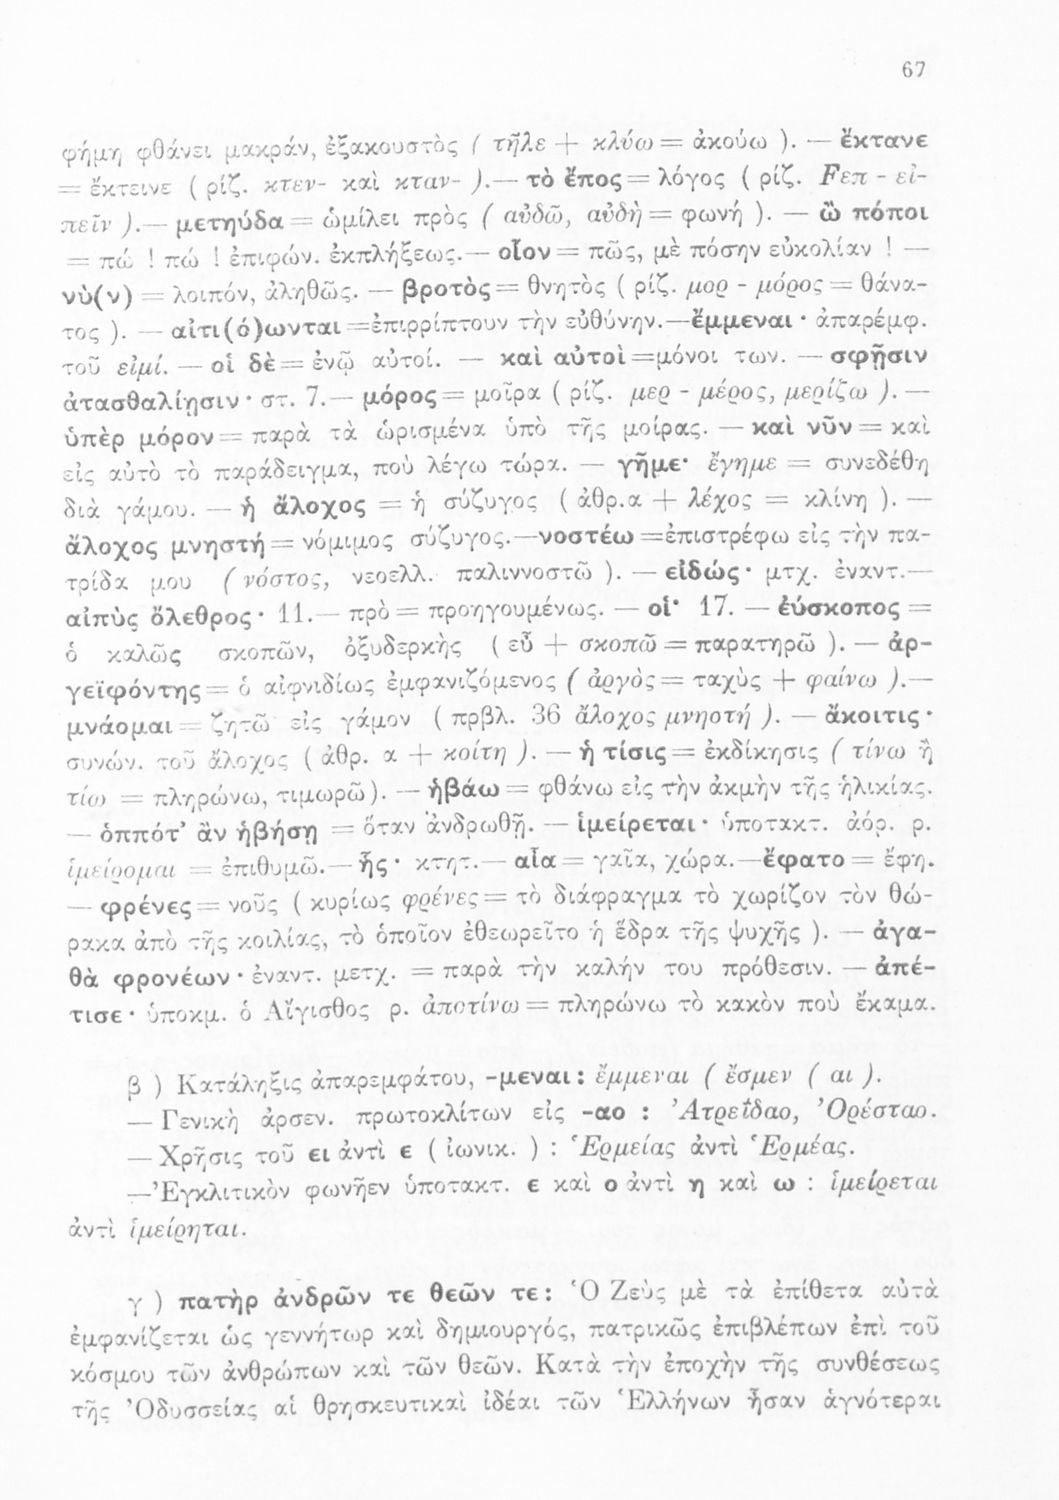 67
φήμη φθάνει μακράν, ἐξακουστὸς ( τῆλε + κλύω = ἀκούω ). — ἔκτανε
= ἔκτεινε ( ρίζ. κτεν- καὶ κταν- ).— τὸ ἔπος = λόγος ( ρίζ. Fεπ - εἰ-
πεῖν ).— μετηύδα = ὡμίλει πρὸς ( αὐδῶ, αὐδὴ = φωνή ). — ὢ πόποι
= πώ ! πώ ! ἐπιφών. ἐκπλήξεως.— οἷον = πῶς, μὲ πόσην εὐκολίαν ! —
νὺ(ν) = λοιπόν, ἀληθῶς. — βροτὸς = θνητὸς ( ρίζ. μορ - μόρος = θάνα-
τος ). — αἰτι(ό)ωνται =ἐπιρρίπτουν τὴν εὐθύνην.—ἔμμεναι · ἀπαρέμφ.
τοῦ εἰμί. — οἱ δὲ = ἐνῷ αὐτοί. — καὶ αὐτοὶ =μόνοι των. — σφῇσιν
ἀτασθαλίῃσιν · στ. 7.— μόρος = μοῖρα ( ρίζ. μερ - μέρος, μερίζω ). —
ὑπὲρ μόρον = παρὰ τὰ ὡρισμένα ὑπὸ τῆς μοίρας. — καὶ νῦν = καὶ
εἰς αὐτὸ τὸ παράδειγμα, ποὺ λέγω τώρα. — γῆμε· ἔγημε = συνεδέθη
διὰ γάμου. — ἡ ἄλοχος = ἡ σύζυγος ( ἀθρ.α + λέχος = κλίνη ). —
ἄλοχος μνηστή = νόμιμος σύζυγος.—νοστέω =ἐπιστρέφω εἰς τὴν πα-
τρίδα μου ( νόστος, νεοελλ. παλιννοστῶ ). — εἰδώς · μτχ. ἐναντ.—
αἰπὺς ὄλεθρος · 11.— πρὸ = προηγουμένως. — οἱ· 17. — ἐύσκοπος =
ὁ καλῶς σκοπῶν, ὀξυδερκὴς ( εὖ + σκοπῶ = παρατηρῶ ). — ἀρ-
γεϊφόντης = ὁ αἰφνιδίως ἐμφανιζόμενος ( ἀργὸς = ταχὺς + φαίνω ).—
μνάομαι = ζητῶ εἰς γάμον ( πρβλ. 36 ἄλοχος μνηοτή ). — ἄκοιτις ·
συνών. τοῦ ἄλοχος ( ἀθρ. α + κοίτη ). — ἡ τίσις = ἐκδίκησις ( τίνω ἢ
τίω = πληρώνω, τιμωρῶ). — ἡβάω = φθάνω εἰς τὴν ἀκμὴν τῆς ἡλικίας.
— ὁππότ’ ἂν ἡβήσῃ = ὅταν ἀνδρωθῇ. — ἱμείρεται · ὑποτακτ. ἀόρ. ρ.
ἱμείρομαι = ἐπιθυμῶ.— ἧς · κτητ.— αἶα = γαῖα, χώρα.—ἔφατο = ἔφη.
— φρένες = νοῦς ( κυρίως φρένες = τὸ διάφραγμα τὸ χωρίζον τὸν θώ-
ρακα ἀπὸ τῆς κοιλίας, τὸ ὁποῖον ἐθεωρεῖτο ἡ ἕδρα τῆς ψυχῆς ). — ἀγα-
θὰ φρονέων · ἐναντ. μετχ. = παρὰ τὴν καλήν του πρόθεσιν. — ἀπέ-
τισε · ὑποκμ. ὁ Αἴγισθος ρ. ἀποτίνω = πληρώνω τὸ κακὸν ποὺ ἔκαμα.
β ) Κατάληξις ἀπαρεμφάτου, -μεναι : ἔμμεναι ( ἔσμεν ( αι ).
— Γενικὴ ἀρσεν. πρωτοκλίτων εἰς -αο : Ἀτρεΐδαο, Ὀρέσταο.
— Χρῆσις τοῦ ει ἀντὶ ε ( ἰωνικ. ) : Ἑρμείας ἀντὶ Ἑρμέας.
—Ἐγκλιτικὸν φωνῆεν ὑποτακτ. ε καὶ ο ἀντὶ η καὶ ω : ἱμείρεται
ἀντὶ ἱμείρηται.
γ ) πατὴρ ἀνδρῶν τε θεῶν τε : Ὁ Ζεὺς μὲ τὰ ἐπίθετα αὐτὰ
ἐμφανίζεται ὡς γεννήτωρ καὶ δημιουργός, πατρικῶς ἐπιβλέπων ἐπὶ τοῦ
κόσμου τῶν ἀνθρώπων καὶ τῶν θεῶν. Κατὰ τὴν ἐποχὴν τῆς συνθέσεως
τῆς Ὀδυσσείας αἱ θρησκευτικαὶ ἰδέαι τῶν Ἑλλήνων ἦσαν ἁγνότεραι